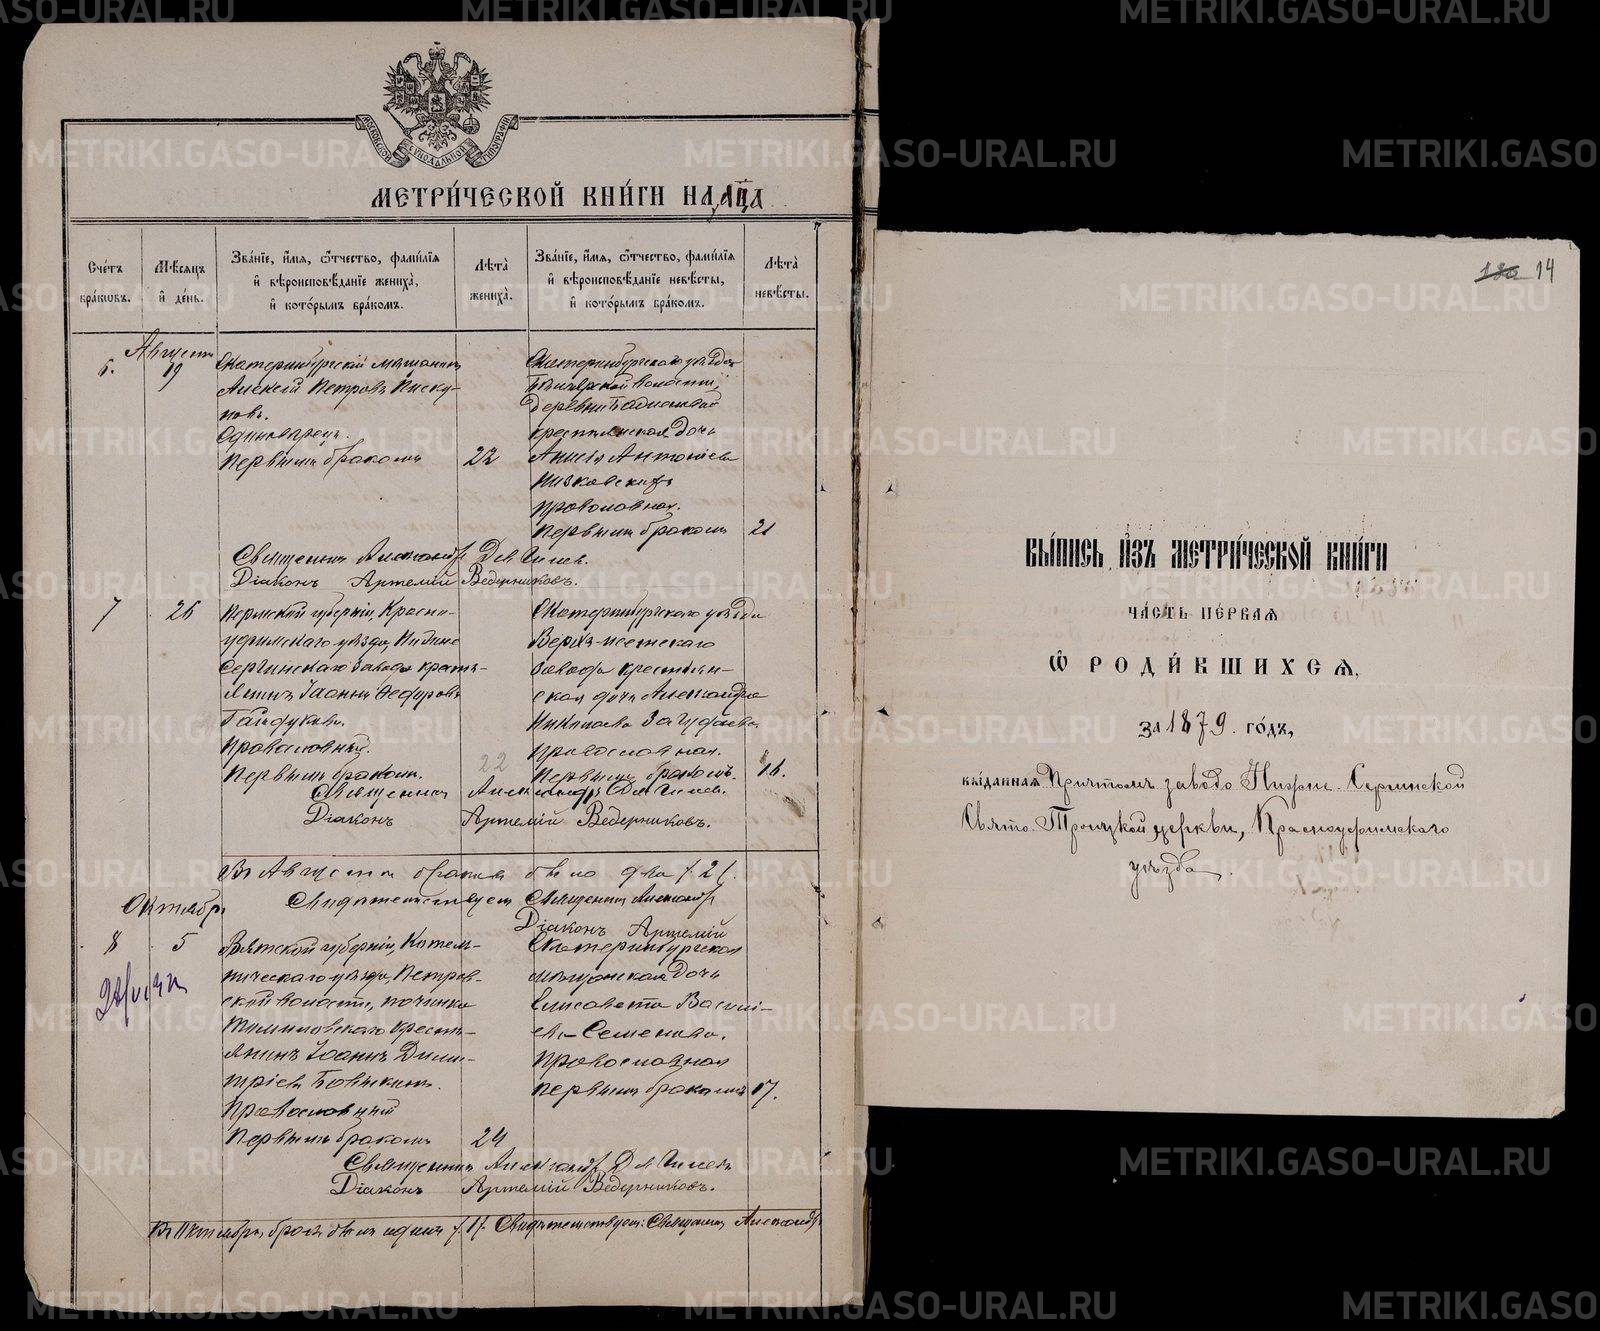 МОСКОВСКОЙ СѴНОДАЛЬНОЙ ТИПОГРАФІИ
МЕТРИ́ЧЕСКОЙ КНИ́ГИ НА
Сче́тъ бра́ковъ.
Мѣ́сяцъ и҆ де́нь.
Зва́нїе, и҆́мѧ, ѻ҆́тчество, фами́лїѧ и҆ вѣроисповѣ́данїе жениха̀, и҆ кото́рымъ бра́комъ.
Лѣ́та жениха̀.
Зва́нїе, и҆́мѧ, ѻ҆́тчество, фами́лїѧ и҆ вѣроисповѣ́данїе невѣ́сты, и҆ кото́рымъ бра́комъ.
Лѣ́та невѣ́сты.
Августъ
6.
19
Екатеринбургскій мѣщанинъ
Алексій Петровъ Писку-
новъ.
Единовѣрецъ.
Первымъ бракомъ
22
Екатеринбургскаго уѣзда
волости,
деревни
крестьянская дочь
Анисія Антоніева
Низковскихъ
православная.
Первымъ бракомъ
21
Священникъ Александръ
Діаконъ Артемій Ведерниковъ.
7
26
Пермской губерніи, Красно-
уфимскаго уѣзда, Нижне
Сергинскаго завода кресть-
янинъ Іоаннъ Феодоровъ
Гайдуковъ.
Православный.
Первымъ бракомъ.
22
Екатеринбургскаго уѣзда
Верхъ-Исетскаго
завода крестьян-
ская дочь Александра
православная.
Первымъ бракомъ.
16.
Священникъ Александръ
Діаконъ Артемій Ведерниковъ.
Въ Августѣ браковъ было два /2/.
Свидѣтельствуютъ Священникъ Александръ
Діаконъ Артемій
Октябрь
8
5
Вятской губерніи, Котель-
ническаго уѣзда, Петров-
ской волости, починка
кресть-
янинъ Іоаннъ Дими-
тріевъ Бовыкинъ.
Православный
Первымъ бракомъ
24
Екатеринбургская
мѣщанская дочь
Елисавета Василі-
ева Семенова.
Православная
первымъ бракомъ
17.
Священникъ Александръ
Діаконъ Артемій Ведерниковъ.
Въ Октябрѣ бракъ былъ одинъ /1/. Свидѣтельствуютъ: Священникъ Александръ
14
ВЫ́ПИСЬ И҆ЗЪ МЕТРИ́ЧЕСКОЙ КНИ́ГИ
ЧА́СТЬ ПЕ́РВАѦ
Ѽ РОДИ́ВШИХСѦ,
за 1879. го́дъ,
вы́данная Причтомъ завода Нижне-Сергинской
Свято-Троицкой церкви, Красноуфимскаго
уѣзда.
METRIKI.GASO-URAL.RU